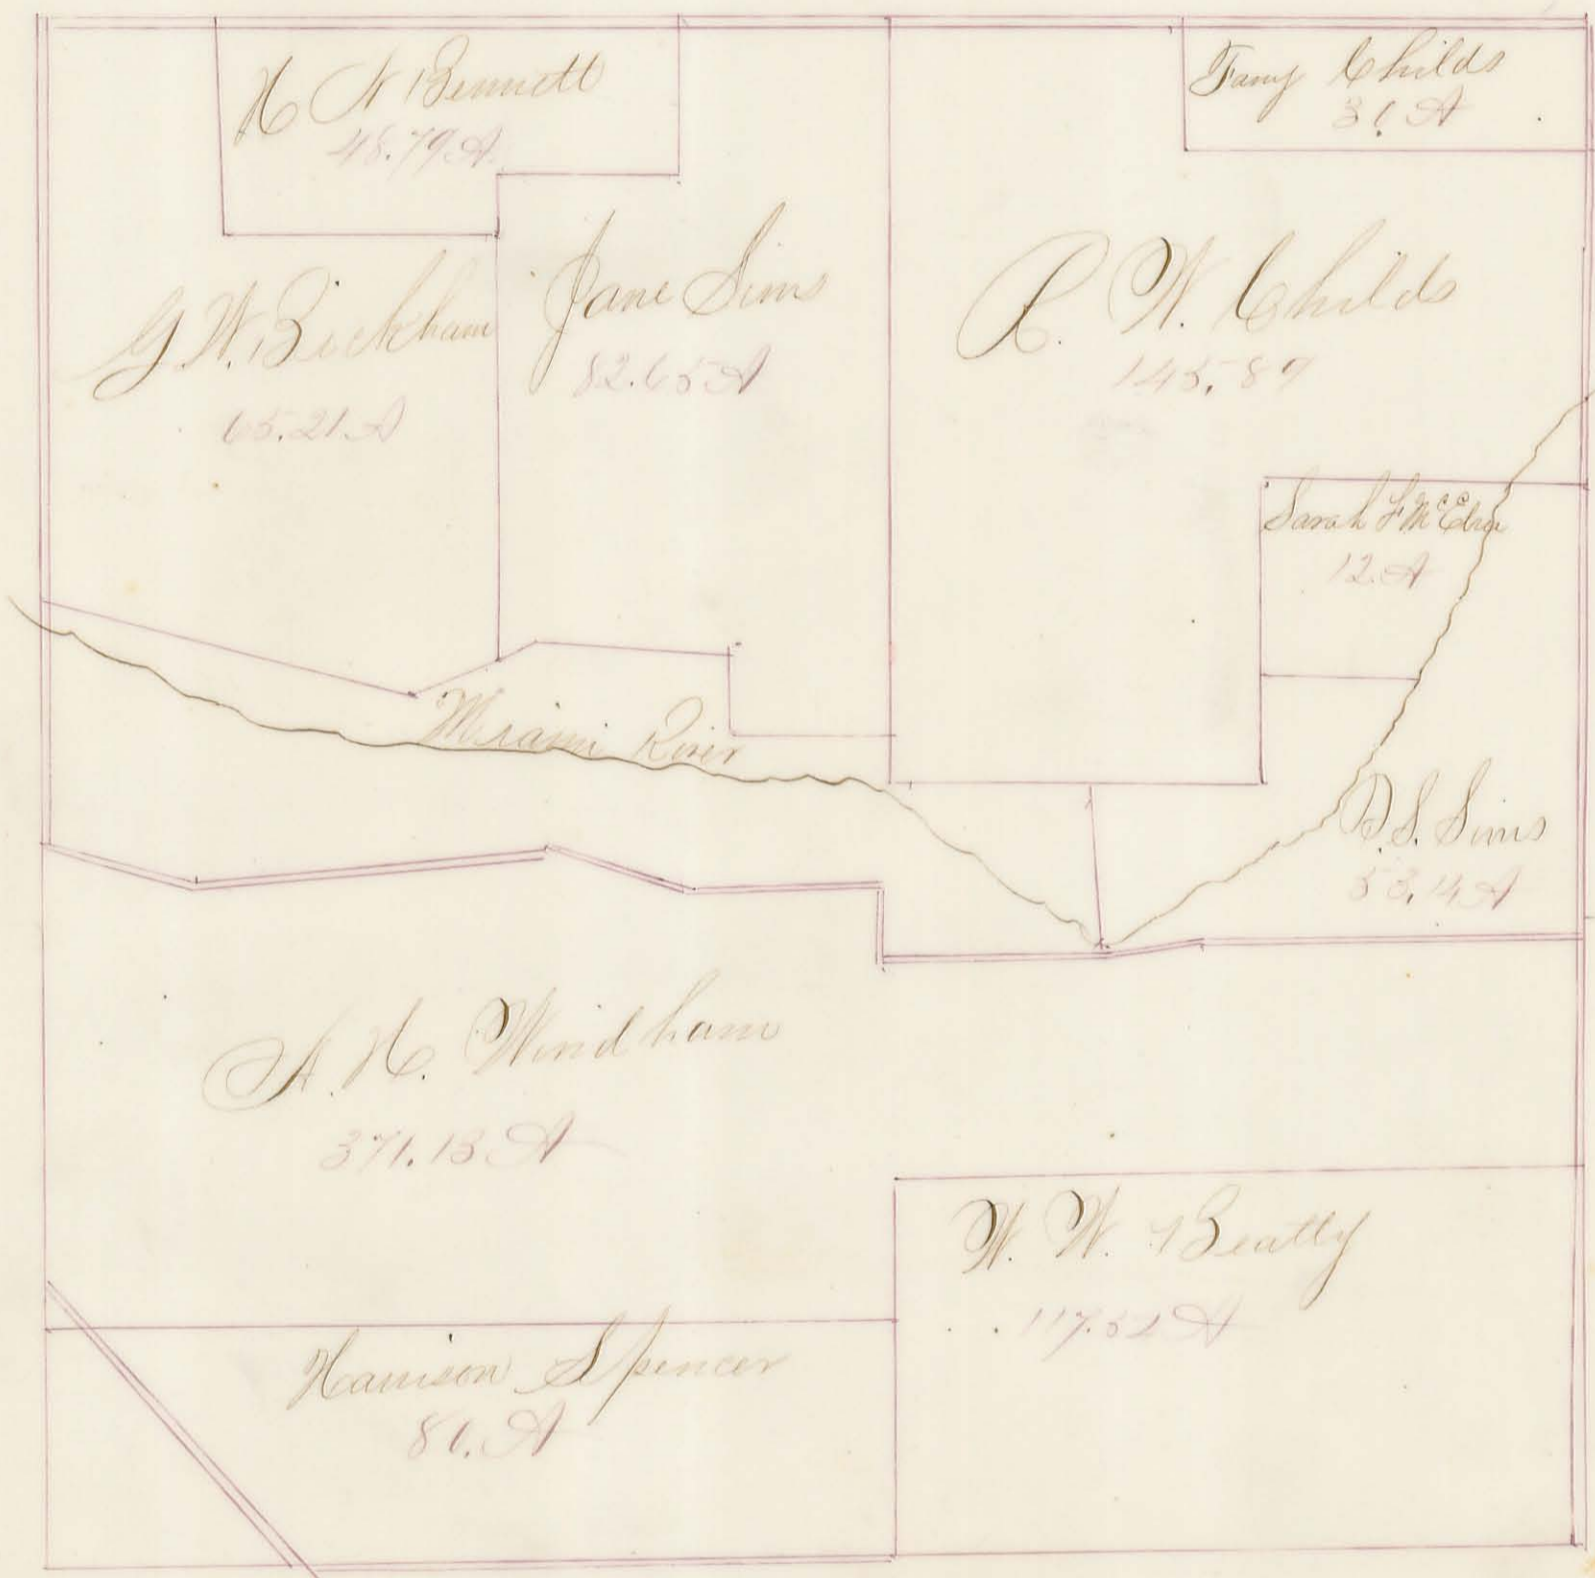 H N Bennett
48.79 A
Fany Childs
31 A
G. W. Bickham
65.21 A
Jane Sims
82.65 A
R. W. Childs
145.89
Sarah F
12. A
Miami River
D. S. Sims
53.14 A
A. H. Windham
371.13 A
W. W. Beatty
117.52 A
Harrison Spencer
81. A